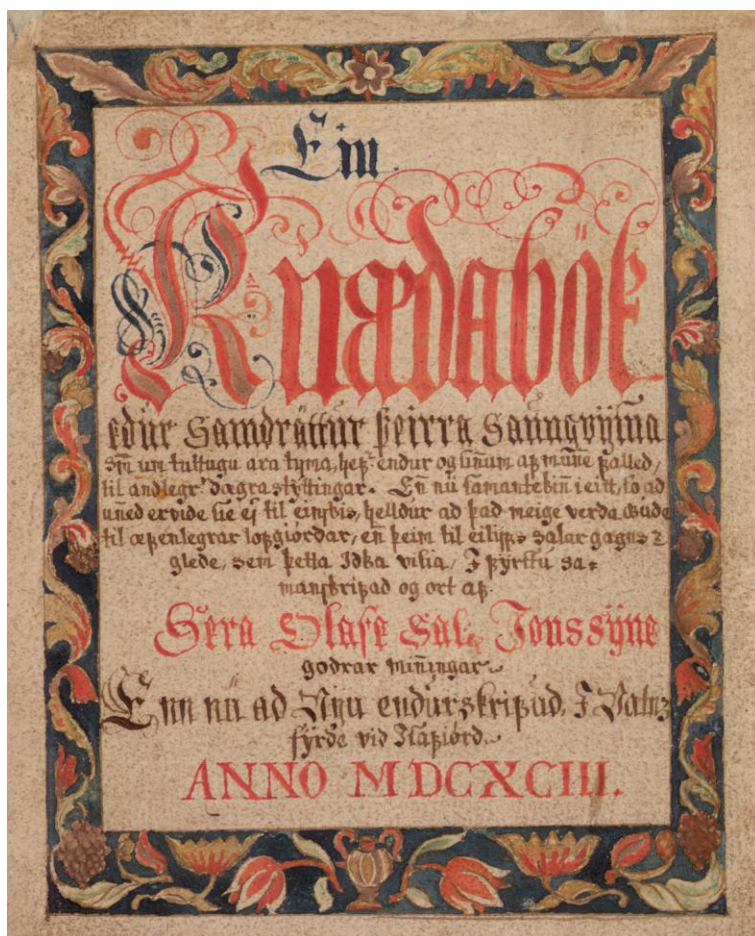 Ein
Kuædabök
edur Samdráttur þeirra Saungvijsna
Sem um tuttugu ara tyma, hefr endur og sinnum af munne falled,
til andlegrar dægrastyttingar. Enn nú samantekinn i eitt, so ad
unned ervide sie ej til einskis, helldur ad þad meige verda Gude
til æfenlegrar lofgiördar, en þeim til eilijfs salar gagns &
glede, sem þetta Idka vilia, I fyrstu sa-
manskrifad og ort af
Sera Olafe Sal. Jonssyne
godrar minningar
Enn nu ad Nyu endurskrifud, I Vatns
fyrde vid Isafiörd
ANNO MDCXCIII.